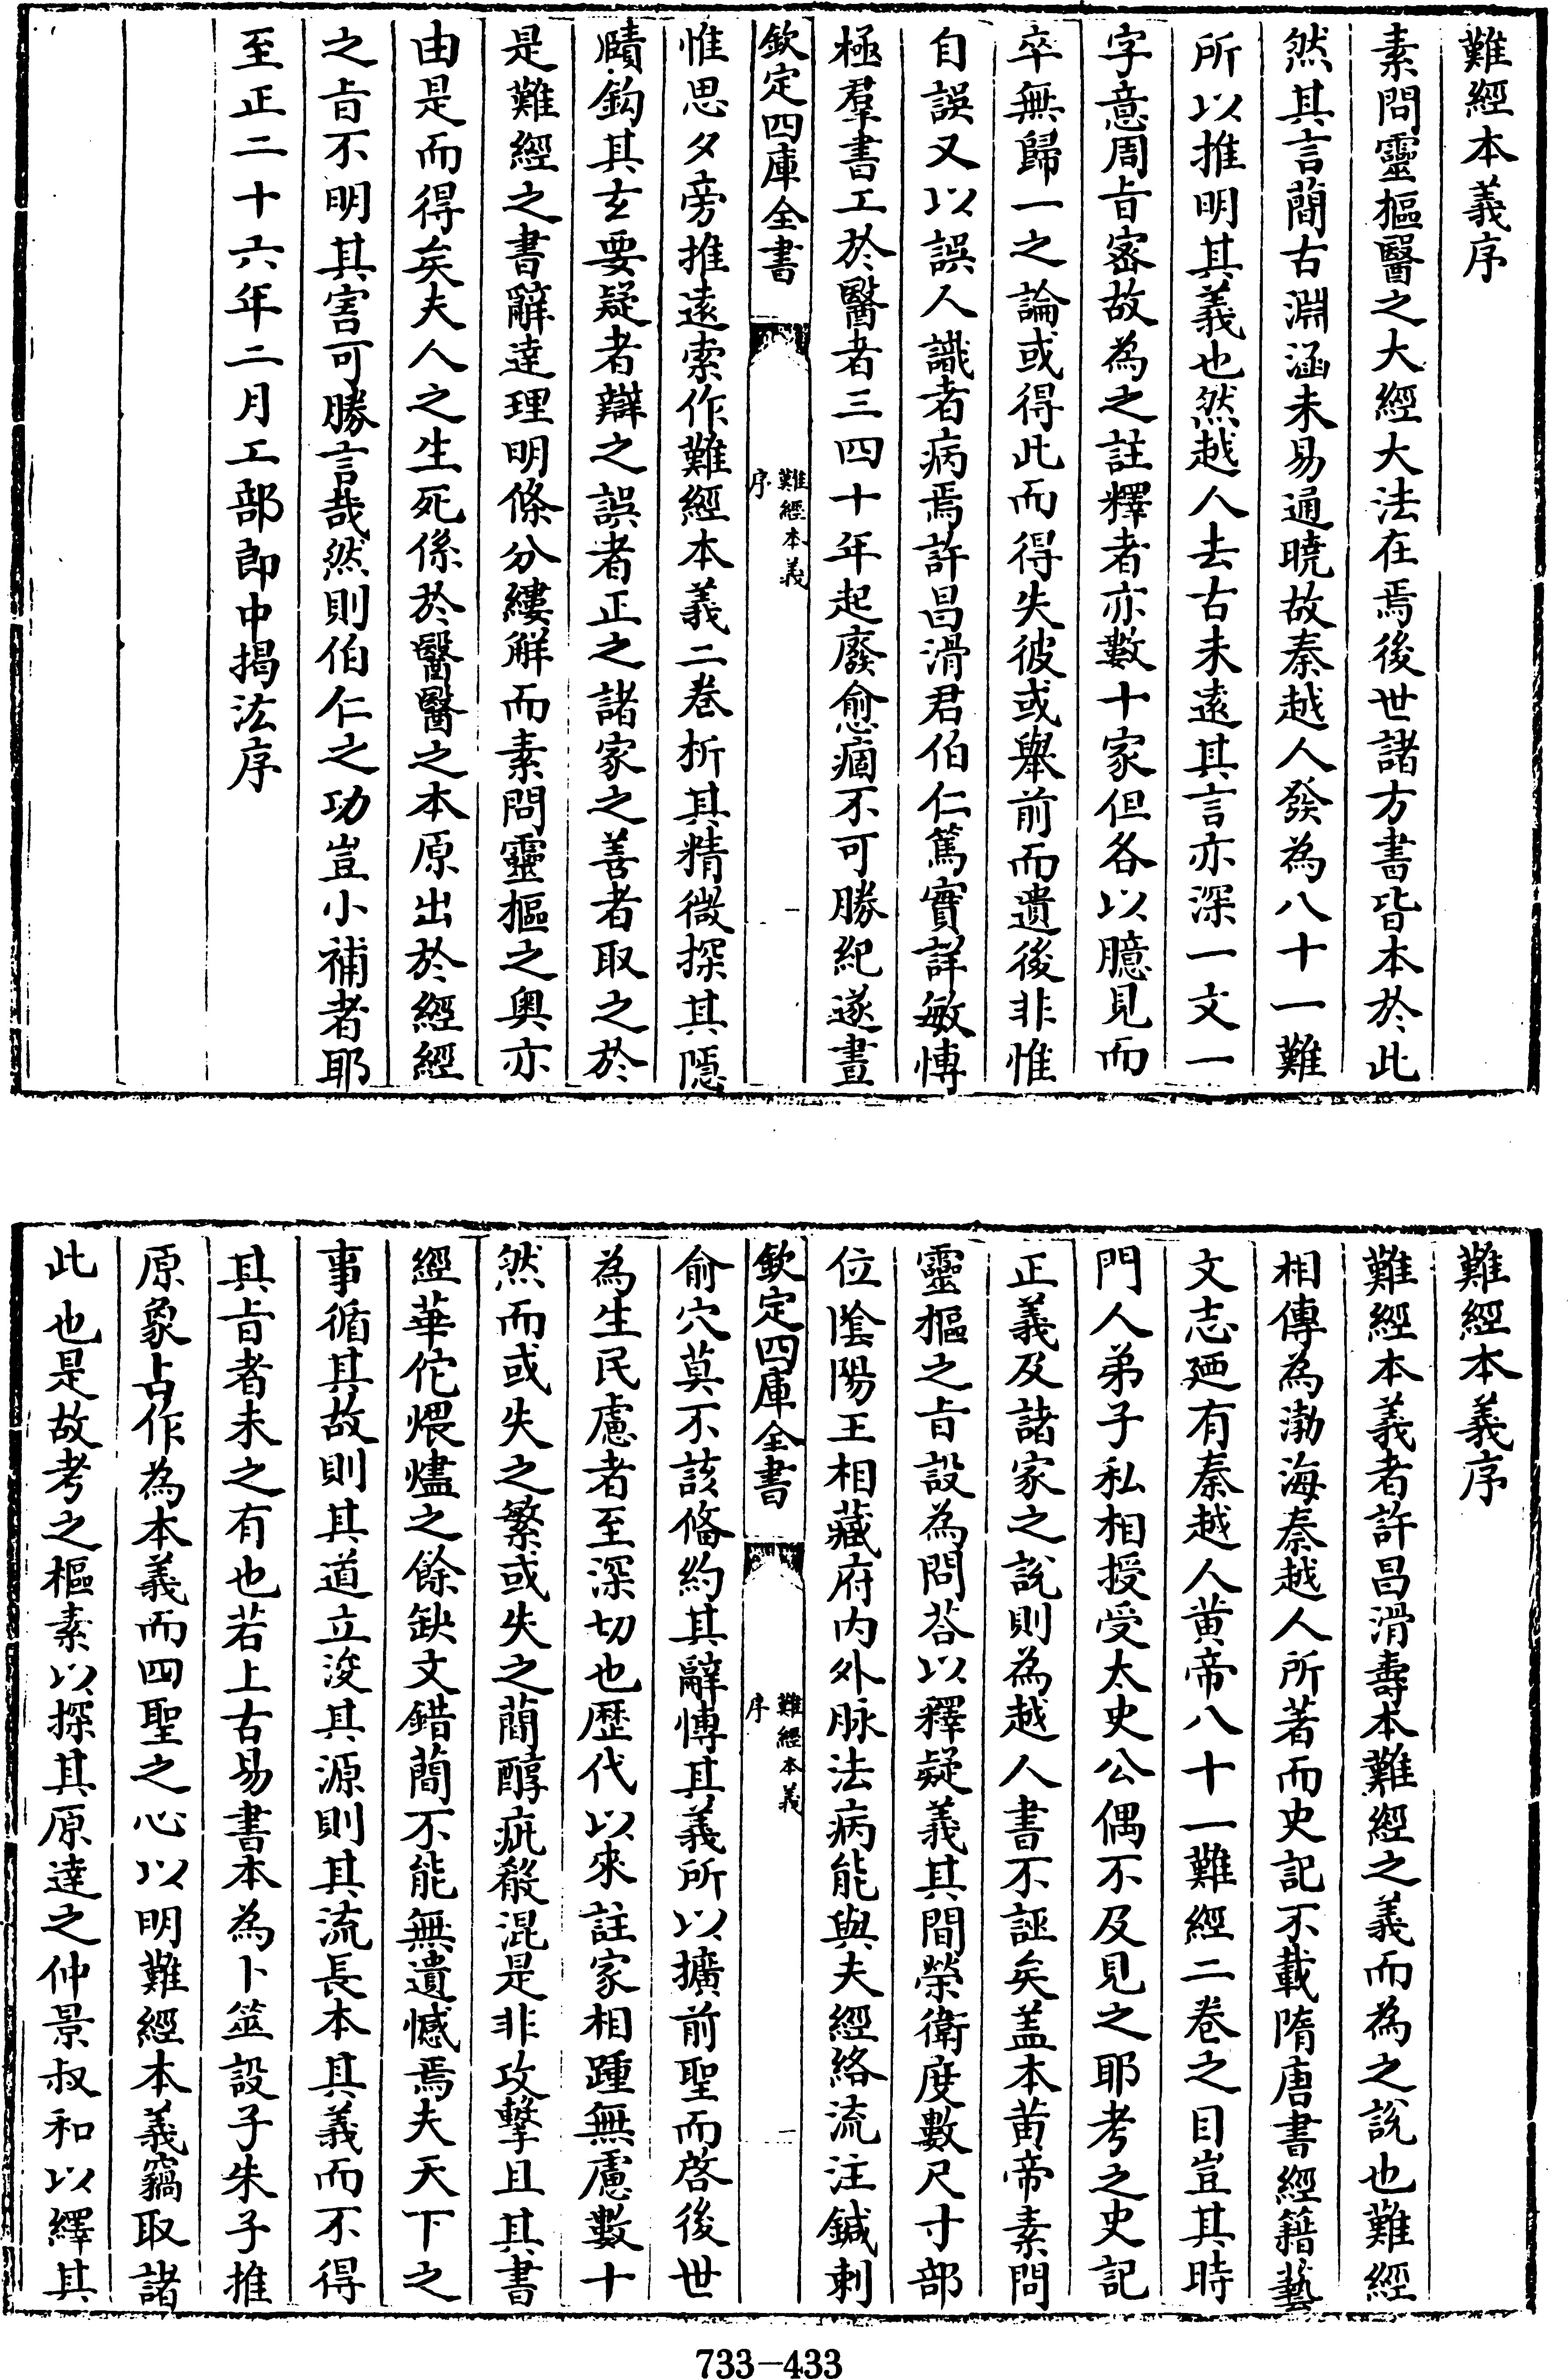 難經本義序
素問靈樞醫之大經大法在焉後世諸方書皆本於此
然其言簡古淵涵未易通曉故秦越人發為八十一難
所以推明其義也然越人去古未遠其言亦深一文一
字意周旨密故為之註釋者亦數十家但各以臆見而
卒無歸一之論或得此而得失彼或舉前而遺後非惟
自誤又以誤人識者病焉許昌滑君伯仁篤實詳敏博
極羣書工於醫者三四十年起廢愈痼不可勝紀遂晝
欽定四庫全書
難經本義
序
一
惟思夕旁推遠索作難經本義二卷析其精微探其隱
賾鈎其玄要疑者辯之誤者正之諸家之善者取之於
是難經之書辭達理明條分縷觧而素問靈樞之奥亦
由是而得矣夫人之生死係於醫醫之本原出於經經
之旨不明其害可勝言哉然則伯仁之功豈小補者耶
至正二十六年二月工部郎中揭汯序
難經本義序
難經本義者許昌滑壽本難經之義而為之說也難經
相傳為渤海秦越人所著而史記不載隋唐書經籍藝
文志廼有秦越人黄帝八十一難經二卷之目豈其時
門人弟子私相授受太史公偶不及見之耶考之史記
正義及諸家之說則為越人書不誣矣盖本黄帝素問
靈樞之旨設為問荅以釋疑義其間榮衛度數尺寸部
位隂陽王相藏府内外脉法病能與夫經絡流注鍼刺
欽定四庫全書
難經本義
序
一
俞穴莫不該俻約其辭博其義所以擴前聖而啓後世
為生民慮者至深切也歷代以來註家相踵無慮數十
然而或失之繁或失之簡醇疵殽混是非攻擊且其書
經華佗煨燼之餘缺文錯簡不能無遺憾焉夫天下之
事循其故則其道立浚其源則其流長本其義而不得
其旨者未之有也若上古易書本為卜筮設子朱子推
原象占作為本義而四聖之心以明難經本義竊取諸
此也是故考之樞素以探其原達之仲景叔和以繹其
733-433